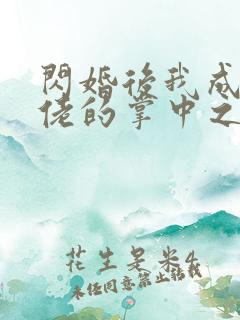 閃婚後我成
佬的掌中之
花生是米4
未经同意禁止转载